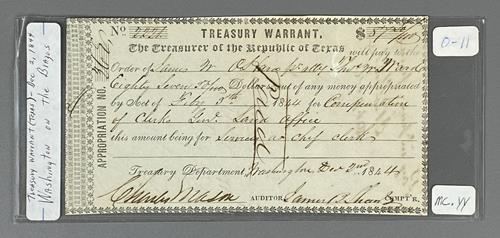 TREASURY WARRANT (TEXAS) - Dec 2, 1844
Washington on the Brazos
No
TREASURY WARRANT.
$ 87
The Treasurer of the Republic of Texas will pay to the
Order of James W
Eighty Seven Dollars out of any money appropriated
by Act of Feby 3th 1844 for Compensation
of Clerks Genl. Land Office
this amount being for Services as chf clerk
Treasury Department, Washington Dec 2nd 1844
Charles Mason AUDITOR. James B. Shaw COMPT'R.
APPROPRIATION NO.
Paid
O-11
MC.YY